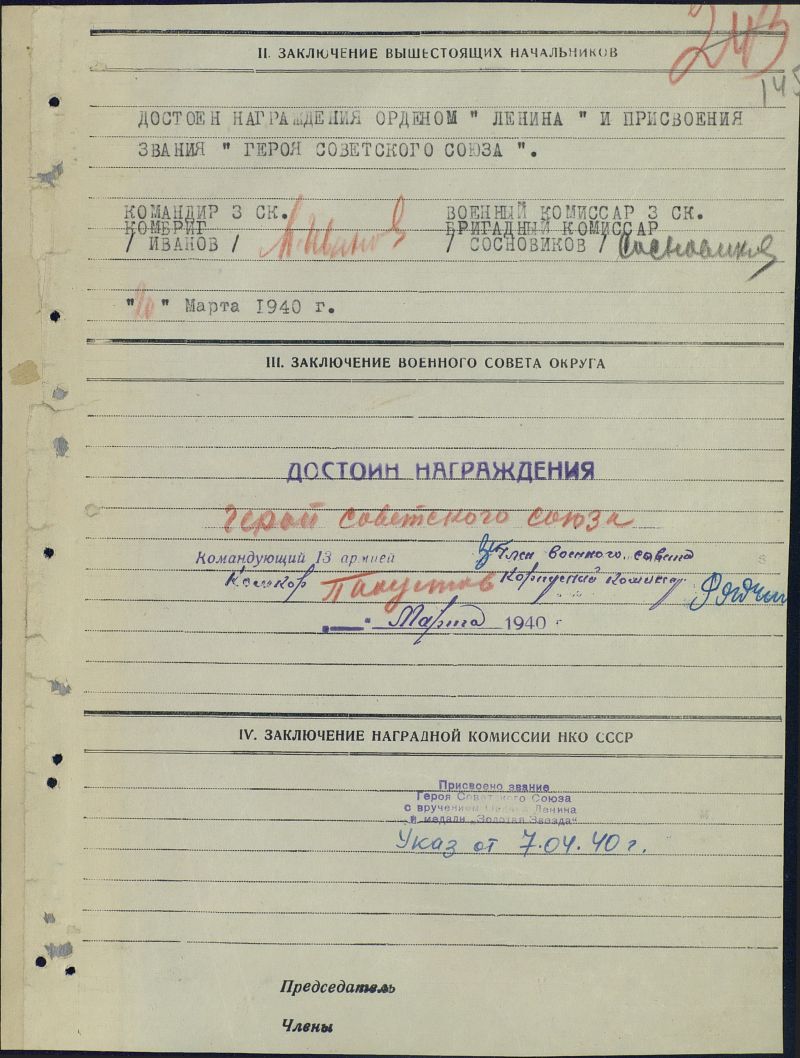 243
145
II. ЗАКЛЮЧЕНИЕ ВЫШЕСТОЯЩИХ НАЧАЛЬНИКОВ
ДОСТОЕН НАГРАЖДЕНИЯ ОРДЕНОМ " ЛЕНИНА " И ПРИСВОЕНИЯ
ЗВАНИЯ " ГЕРОЯ СОВЕТСКОГО СОЮЗА ".
КОМАНДИР 3 СК. ВОЕННЫЙ КОМИССАР 3 СК.
КОМБРИГ БРИГАДНЫЙ КОМИССАР
/ ИВАНОВ / / СОСНОВИКОВ / Сосновиков
" " Марта 1940 г.
III. ЗАКЛЮЧЕНИЕ ВОЕННОГО СОВЕТА ОКРУГА
ДОСТОИН НАГРАЖДЕНИЯ
Герой советского союза
Командующий 13 армией Член военного совета
Комкор Корпусной комиссар
Марта 1940 г
IV. ЗАКЛЮЧЕНИЕ НАГРАДНОЙ КОМИССИИ НКО СССР
Присвоено звание
Героя Советского Союза
с вручением Ордена Ленина
и медали „Золотая Звезда"
Указ от 7.04.40 г.
Председатель
Члены